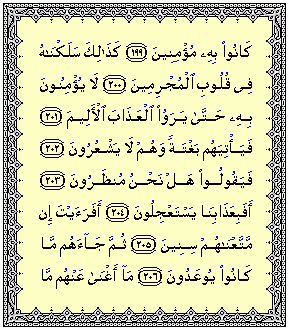 كَانُوا۟ بِهِۦ مُؤْمِنِينَ ﴿١٩٩﴾ كَذَٰلِكَ سَلَكْنَـٰهُ
فِى قُلُوبِ ٱلْمُجْرِمِينَ ﴿٢٠٠﴾ لَا يُؤْمِنُونَ
بِهِۦ حَتَّىٰ يَرَوُا۟ ٱلْعَذَابَ ٱلْأَلِيمَ ﴿٢٠١﴾
فَيَأْتِيَهُم بَغْتَةً وَهُمْ لَا يَشْعُرُونَ ﴿٢٠٢﴾
فَيَقُولُوا۟ هَلْ نَحْنُ مُنظَرُونَ ﴿٢٠٣﴾
أَفَبِعَذَابِنَا يَسْتَعْجِلُونَ ﴿٢٠٤﴾ أَفَرَءَيْتَ إِن
مَّتَّعْنَـٰهُمْ سِنِينَ ﴿٢٠٥﴾ ثُمَّ جَآءَهُم مَّا
كَانُوا۟ يُوعَدُونَ ﴿٢٠٦﴾ مَآ أَغْنَىٰ عَنْهُم مَّا